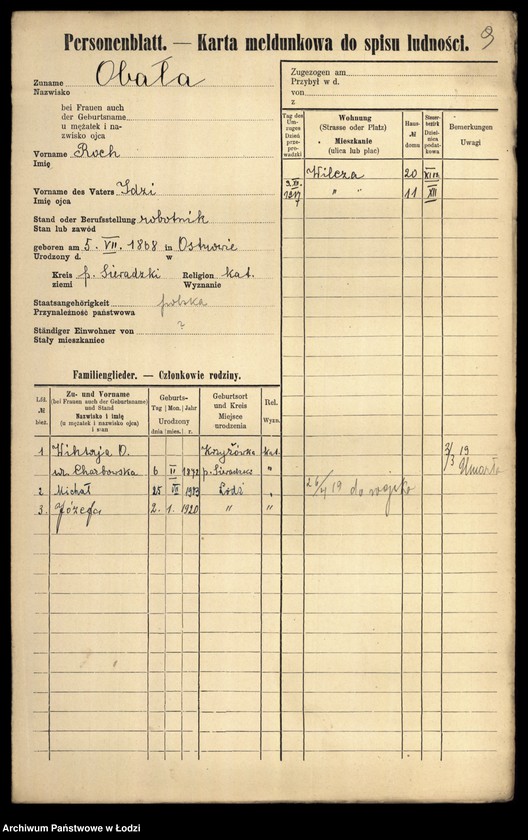 Personenblatt. — Karta meldunkowa do spisu ludności. 9
Zuname Obała
Nazwisko
bei Frauen auch
der Geburtsname
u mężatek i na-
zwisko ojca
Vorname Roch
Imię
Vorname des Vaters Idzi
Imię ojca
Stand oder Berufsstellung robotnik
Stan lub zawód
geboren am 5. VII. 1868 in Ostrowie
Urodzony d. w
Kreis p. Sieradzki Religion kat.
ziemi Wyznanie
Staatsangehörigkeit polska
Przynależność państwowa
Ständiger Einwohner von ?
Stały mieszkaniec
Zugezogen am
Przybył w d.
von
z
Tag des Um-zuges Dzień prze-pro-wadzki
Wohnung (Strasse oder Platz) Mieszkanie (ulica lub plac)
Haus-№ domu
Steuer-bezirk Dzielnica podatkowa
Bemerkungen Uwagi
Wilcza 20 XIIa
" " 11 XII
Familienglieder. — Członkowie rodziny.
Lfd. № bież.
Zu- und Vorname (bei Frauen auch der Geburtsname) und Stand Nazwisko i imię (u mężatek i nazwisko ojca) i stan
Geburts- Tag Mon. Jahr Urodzony dnia mies. r.
Geburtsort und Kreis Miejsce urodzenia
Rel. Wyzn.
1 Wiktorja O. Krzyżówka kat.
ur. Charbowska 6 1872 p. Sieradzki "
2 Michał 25 VII 1903 Łódź "
3. Józefa 2. 1. 1920 " "
2/3 19
Umarła
26/4 19 do wojska
Archiwum Państwowe w Łodzi